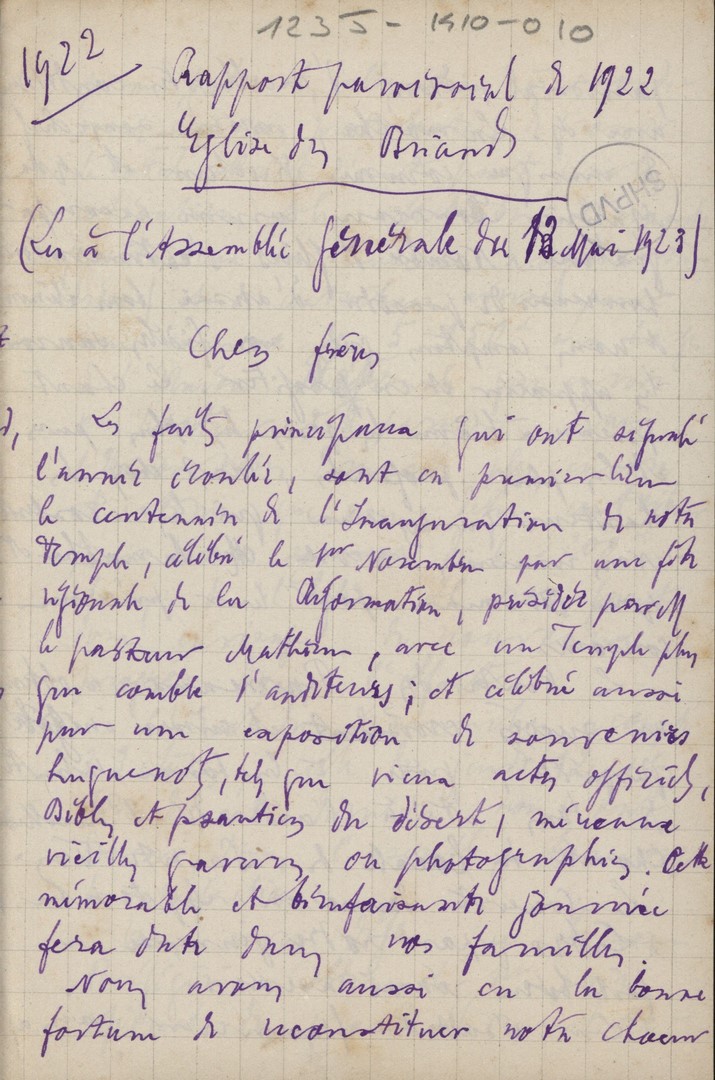 1235 - 1910-010
1922
Rapport paroissial de 1922
Eglise des Briands
SHPVD
(Lu à l'Assemblée Générale du 13 Mai 1923)
Chers frères
Les faits principaux qui ont signalé
l'année écoulée, sont en premier lieu
le centenaire de l'Inauguration de notre
Temple, célébré le 1er Novembre par une fête
régionale de la Réformation, présidée par M
le pasteur Mathieu, avec un Temple plus
que comble d'auditeurs; et célébré aussi
par une exposition de souvenirs
huguenots, tels que vieux actes officiels,
Bibles et psautiers du désert, méreaux
vieilles gravures ou photographies. Cette
mémorable et bienfaisante journée
fera date dans nos familles.
Nous avons aussi eu la bonne
fortune de reconstituer notre choeur